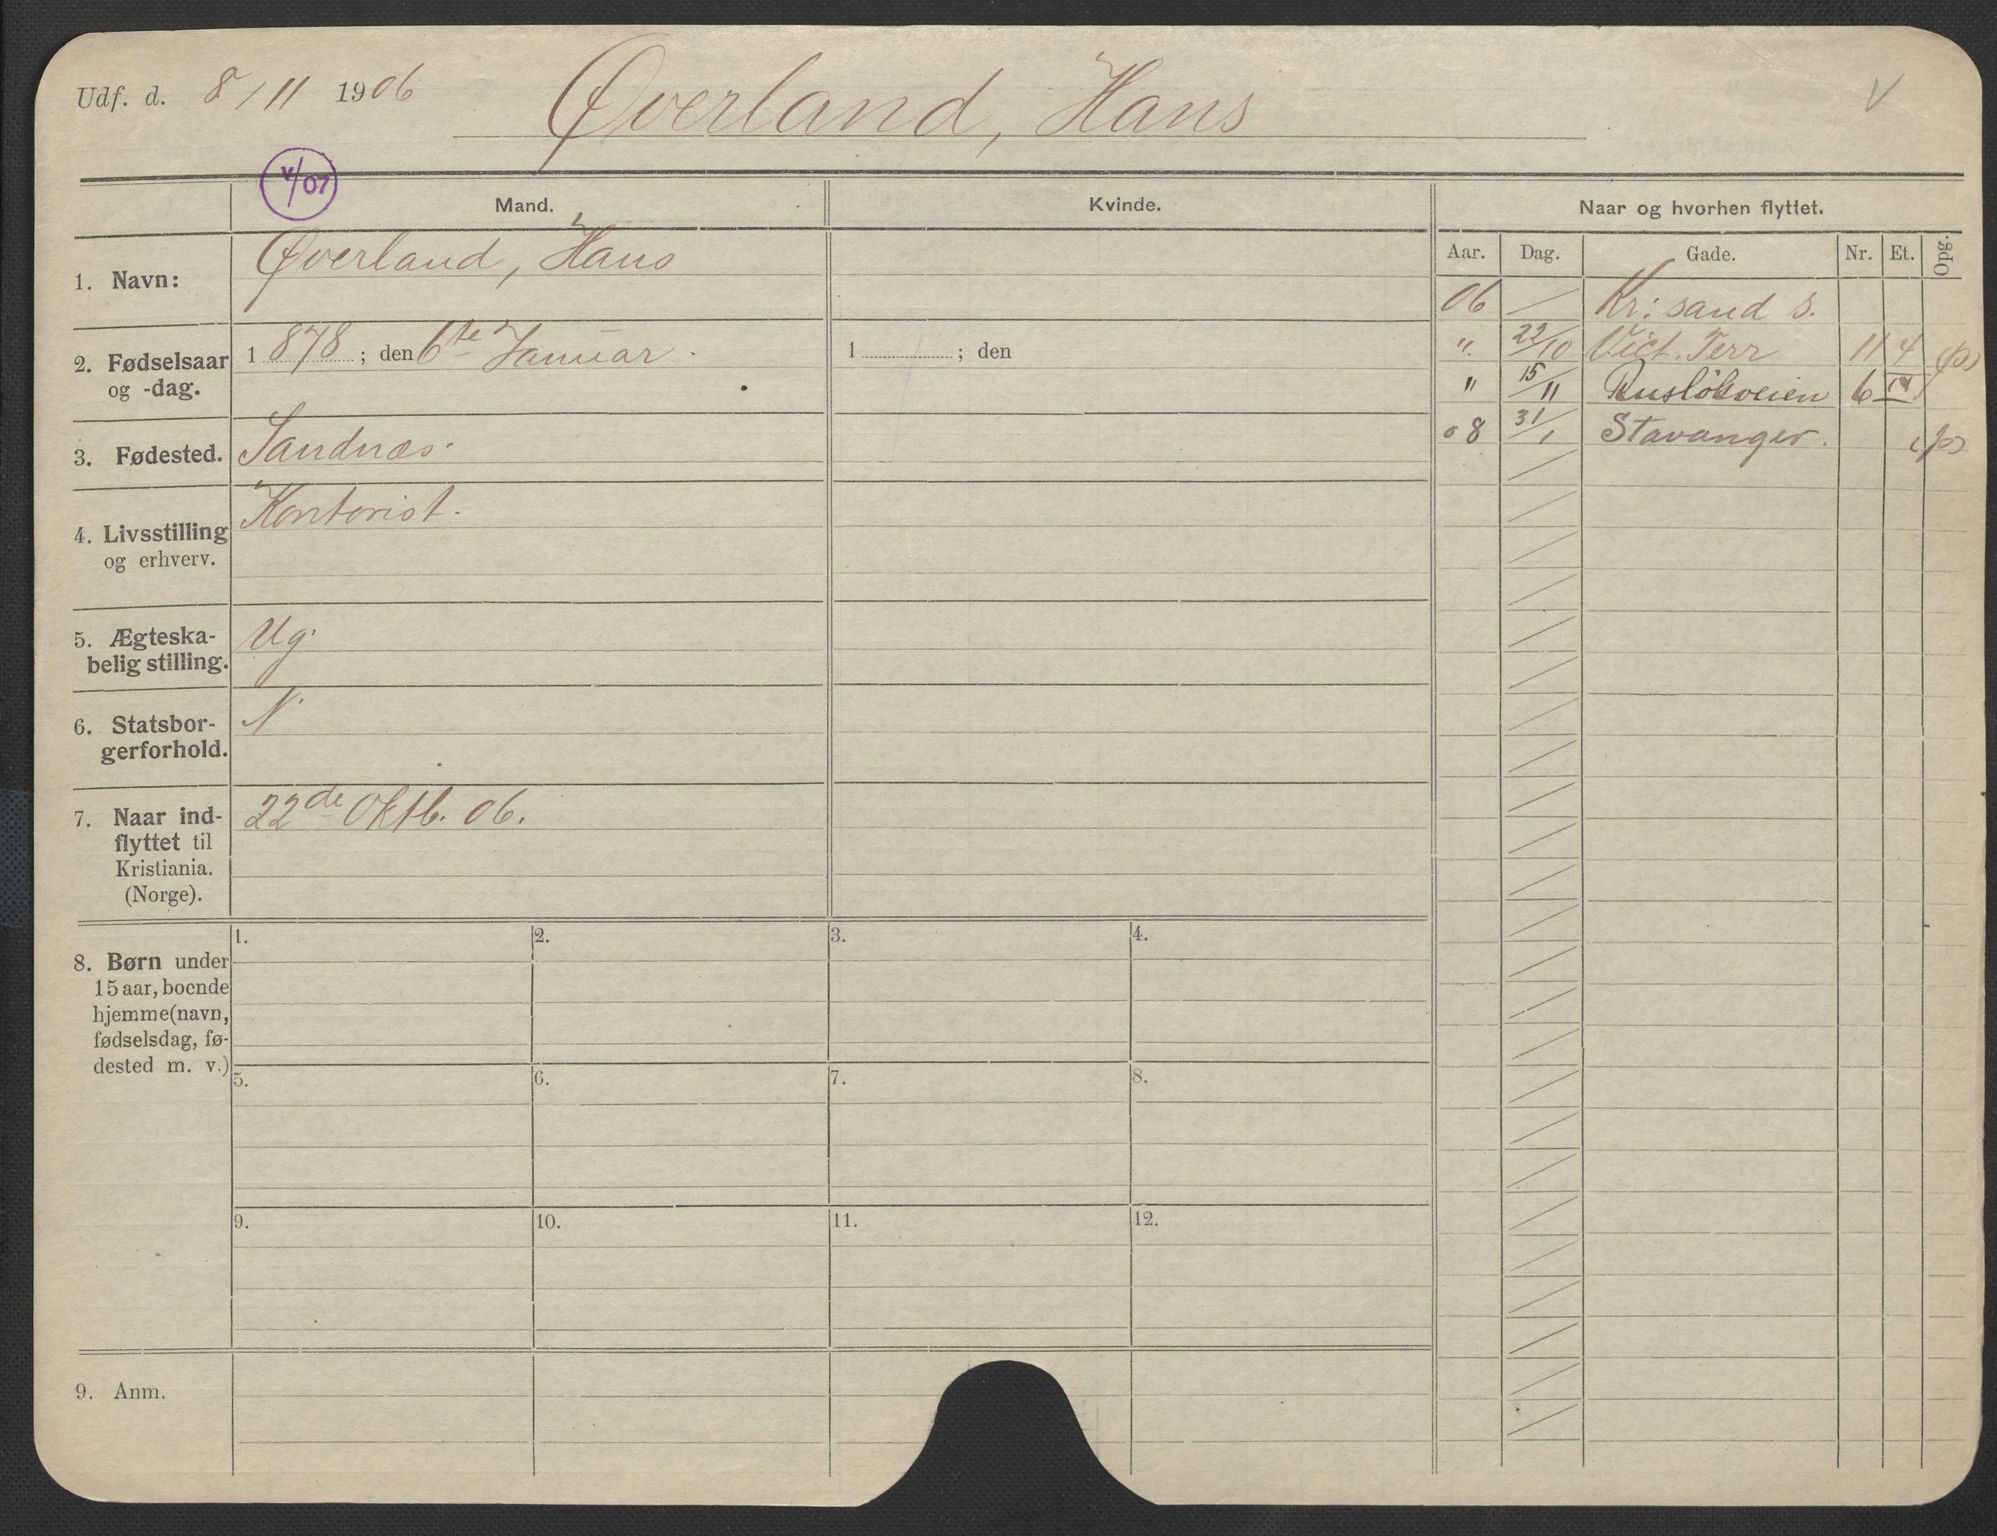 Udf. d. 8/11 1906 Øverland, Hans
V
V/07
Mand. Kvinde. Naar og hvorhen flyttet.
Aar. Dag. Gade. Nr. Et. Opg.
1. Navn: Øverland, Hans
2. Fødselsaar og -dag. 1878; den 6te Januar. 1 ; den
3. Fødested. Sandnæs.
4. Livsstilling og erhverv. Kontorist.
5. Ægteska-
belig stilling. Ug.
6. Statsbor-
gerforhold. N
7. Naar ind-
flyttet til
Kristiania.
(Norge). 22de Oktb. 06.
06 — Kr:sand S.
" 22/10 Vict. Terr 11 4
" 15/11 Rusløkveien 6 IV
08 31/1 Stavanger.
8. Børn under
15 aar, boende
hjemme (navn,
fødselsdag, fø-
dested m. v.)
1. 2. 3. 4.
5. 6. 7. 8.
9. 10. 11. 12.
9. Anm.